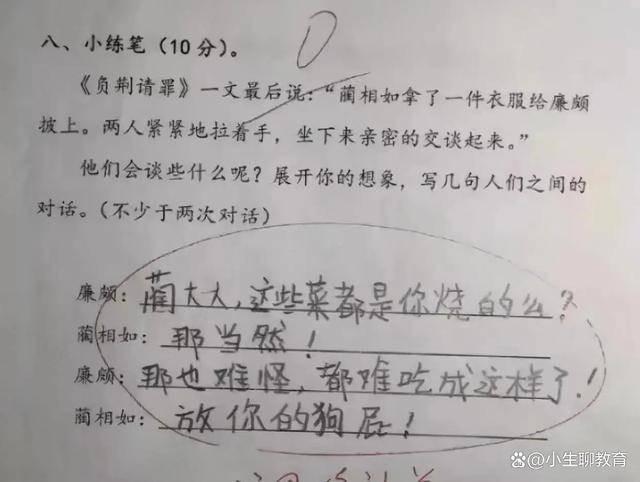 八、小练笔（10分）。
0
《负荆请罪》一文最后说：“蔺相如拿了一件衣服给廉颇
披上。两人紧紧地拉着手，坐下来亲密的交谈起来。”
他们会谈些什么呢？展开你的想象，写几句人们之间的
对话。（不少于两次对话）
廉颇：蔺大大，这些菜都是你烧的么？
蔺相如：那当然！
廉颇：那也难怪，都难吃成这样了！
蔺相如：放你的狗屁！
小生聊教育